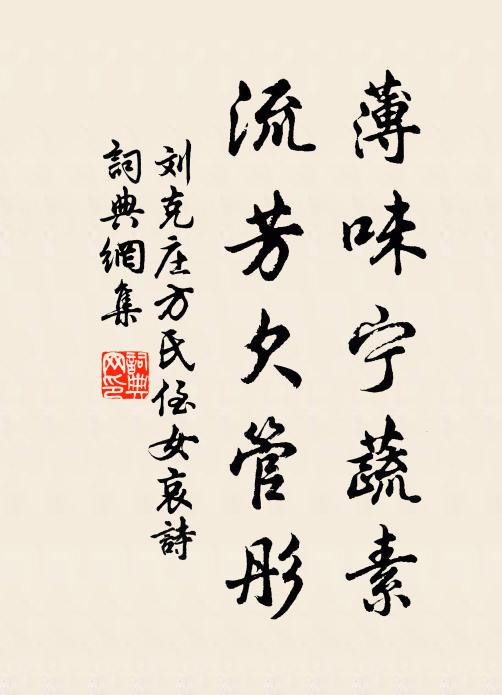 薄味宁蔬素
流芳欠管彤
刘克庄方氏侄女哀詩
詞典網集
詞典网印